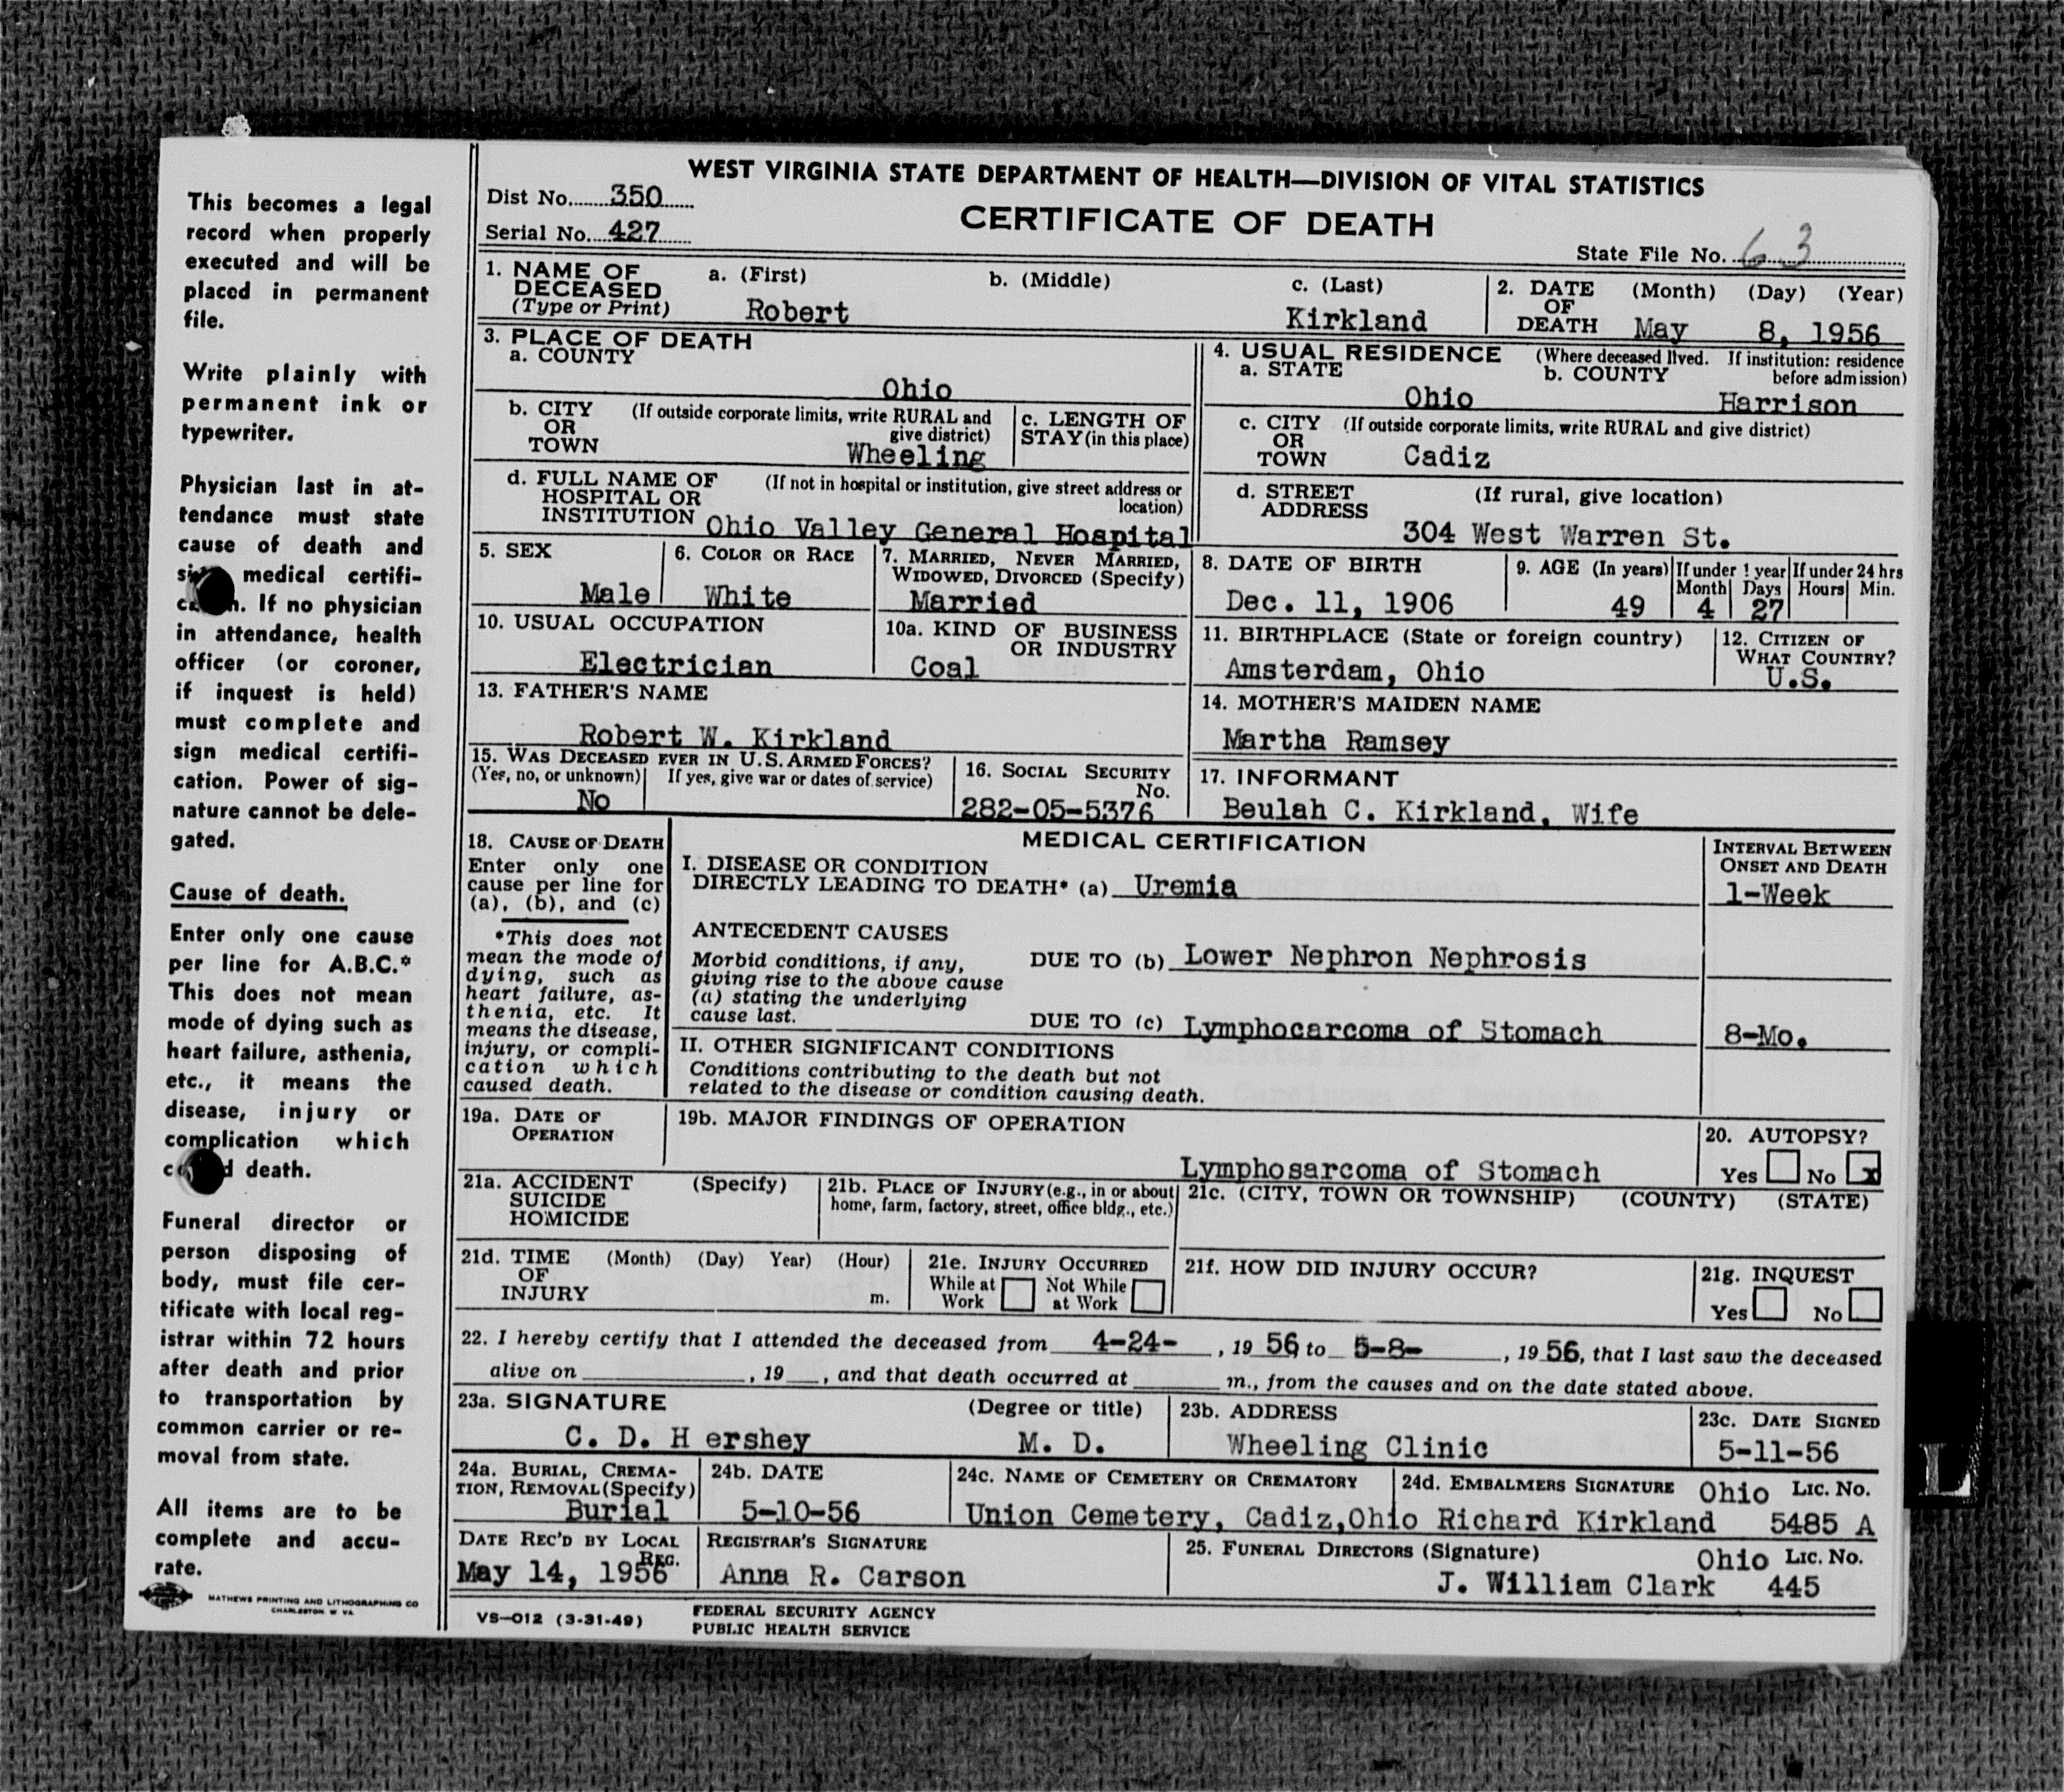 This becomes a legal
record when properly
executed and will be
placed in permanent
file.
Write plainly with
permanent ink or
typewriter.
Physician last in at-
tendance must state
cause of death and
medical certifi-
If no physician
in attendance, health
officer (or coroner,
if inquest is held)
must complete and
sign medical certifi-
cation. Power of sig-
nature cannot be dele-
gated.
Cause of death.
Enter only one cause
per line for A.B.C.*
This does not mean
mode of dying such as
heart failure, asthenia,
etc., it means the
disease, injury or
complication which
death.
Funeral director or
person disposing of
body, must file cer-
tificate with local reg-
istrar within 72 hours
after death and prior
to transportation by
common carrier or re-
moval from state.
All items are to be
complete and accu-
rate.
MATHEWS PRINTING AND LITHOGRAPHING CO
CHARLESTON W VA
WEST VIRGINIA STATE DEPARTMENT OF HEALTH—DIVISION OF VITAL STATISTICS
Dist No. 350
CERTIFICATE OF DEATH
Serial No. 427
State File No. 63
1. NAME OF DECEASED (Type or Print) a. (First) Robert b. (Middle) c. (Last) Kirkland
2. DATE OF DEATH (Month) (Day) (Year) May 8, 1956
3. PLACE OF DEATH
a. COUNTY Ohio
4. USUAL RESIDENCE (Where deceased lived. If institution: residence before admission)
a. STATE Ohio b. COUNTY Harrison
b. CITY OR TOWN (If outside corporate limits, write RURAL and give district) Wheeling
c. LENGTH OF STAY (in this place)
c. CITY OR TOWN (If outside corporate limits, write RURAL and give district) Cadiz
d. FULL NAME OF HOSPITAL OR INSTITUTION (If not in hospital or institution, give street address or location) Ohio Valley General Hospital
d. STREET ADDRESS (If rural, give location) 304 West Warren St.
5. SEX Male
6. COLOR OR RACE White
7. MARRIED, NEVER MARRIED, WIDOWED, DIVORCED (Specify) Married
8. DATE OF BIRTH Dec. 11, 1906
9. AGE (In years) 49 If under 1 year Month 4 Days 27 If under 24 hrs Hours Min.
10. USUAL OCCUPATION Electrician
10a. KIND OF BUSINESS OR INDUSTRY Coal
11. BIRTHPLACE (State or foreign country) Amsterdam, Ohio
12. CITIZEN OF WHAT COUNTRY? U.S.
13. FATHER'S NAME Robert W. Kirkland
14. MOTHER'S MAIDEN NAME Martha Ramsey
15. WAS DECEASED EVER IN U.S. ARMED FORCES? (Yes, no, or unknown) No If yes, give war or dates of service)
16. SOCIAL SECURITY No. 282-05-5376
17. INFORMANT Beulah C. Kirkland, Wife
18. CAUSE OF DEATH
Enter only one
cause per line for
(a), (b), and (c)
*This does not
mean the mode of
dying, such as
heart failure, as-
thenia, etc. It
means the disease,
injury, or compli-
cation which
caused death.
MEDICAL CERTIFICATION
INTERVAL BETWEEN ONSET AND DEATH
I. DISEASE OR CONDITION
DIRECTLY LEADING TO DEATH* (a) Uremia 1-Week
ANTECEDENT CAUSES
Morbid conditions, if any,
giving rise to the above cause
(a) stating the underlying
cause last.
DUE TO (b) Lower Nephron Nephrosis
DUE TO (c) Lymphocarcoma of Stomach 8-Mo.
II. OTHER SIGNIFICANT CONDITIONS
Conditions contributing to the death but not
related to the disease or condition causing death.
19a. DATE OF OPERATION
19b. MAJOR FINDINGS OF OPERATION Lymphosarcoma of Stomach
20. AUTOPSY? Yes No x
21a. ACCIDENT SUICIDE HOMICIDE (Specify)
21b. PLACE OF INJURY (e.g., in or about home, farm, factory, street, office bldg., etc.)
21c. (CITY, TOWN OR TOWNSHIP) (COUNTY) (STATE)
21d. TIME OF INJURY (Month) (Day) Year) (Hour) m.
21e. INJURY OCCURRED While at Work Not While at Work
21f. HOW DID INJURY OCCUR?
21g. INQUEST Yes No
22. I hereby certify that I attended the deceased from 4-24- , 19 56 to 5-8- , 19 56, that I last saw the deceased
alive on , 19 , and that death occurred at m., from the causes and on the date stated above.
23a. SIGNATURE C. D. H ershey (Degree or title) M. D.
23b. ADDRESS Wheeling Clinic
23c. DATE SIGNED 5-11-56
24a. BURIAL, CREMA-TION, REMOVAL (Specify) Burial
24b. DATE 5-10-56
24c. NAME OF CEMETERY OR CREMATORY Union Cemetery, Cadiz,Ohio
24d. EMBALMERS SIGNATURE Richard Kirkland Ohio LIC. NO. 5485 A
DATE REC'D BY LOCAL REG. May 14, 1956
REGISTRAR'S SIGNATURE Anna R. Carson
25. FUNERAL DIRECTORS (Signature) J. William Clark Ohio LIC. NO. 445
VS—012 (3-31-49)
FEDERAL SECURITY AGENCY
PUBLIC HEALTH SERVICE
L